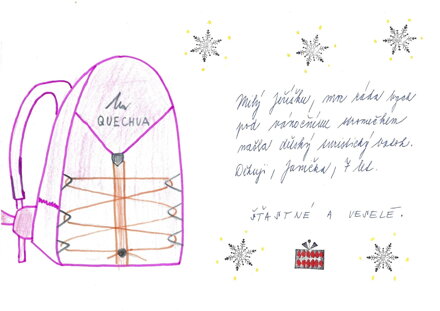 QUECHUA
Milý Ježíšku, moc ráda bych
pod vánočním stromečkem
našla dětský turistický batoh.
Děkuji, Janička, 7 let.
ŠŤASTNÉ A VESELÉ.